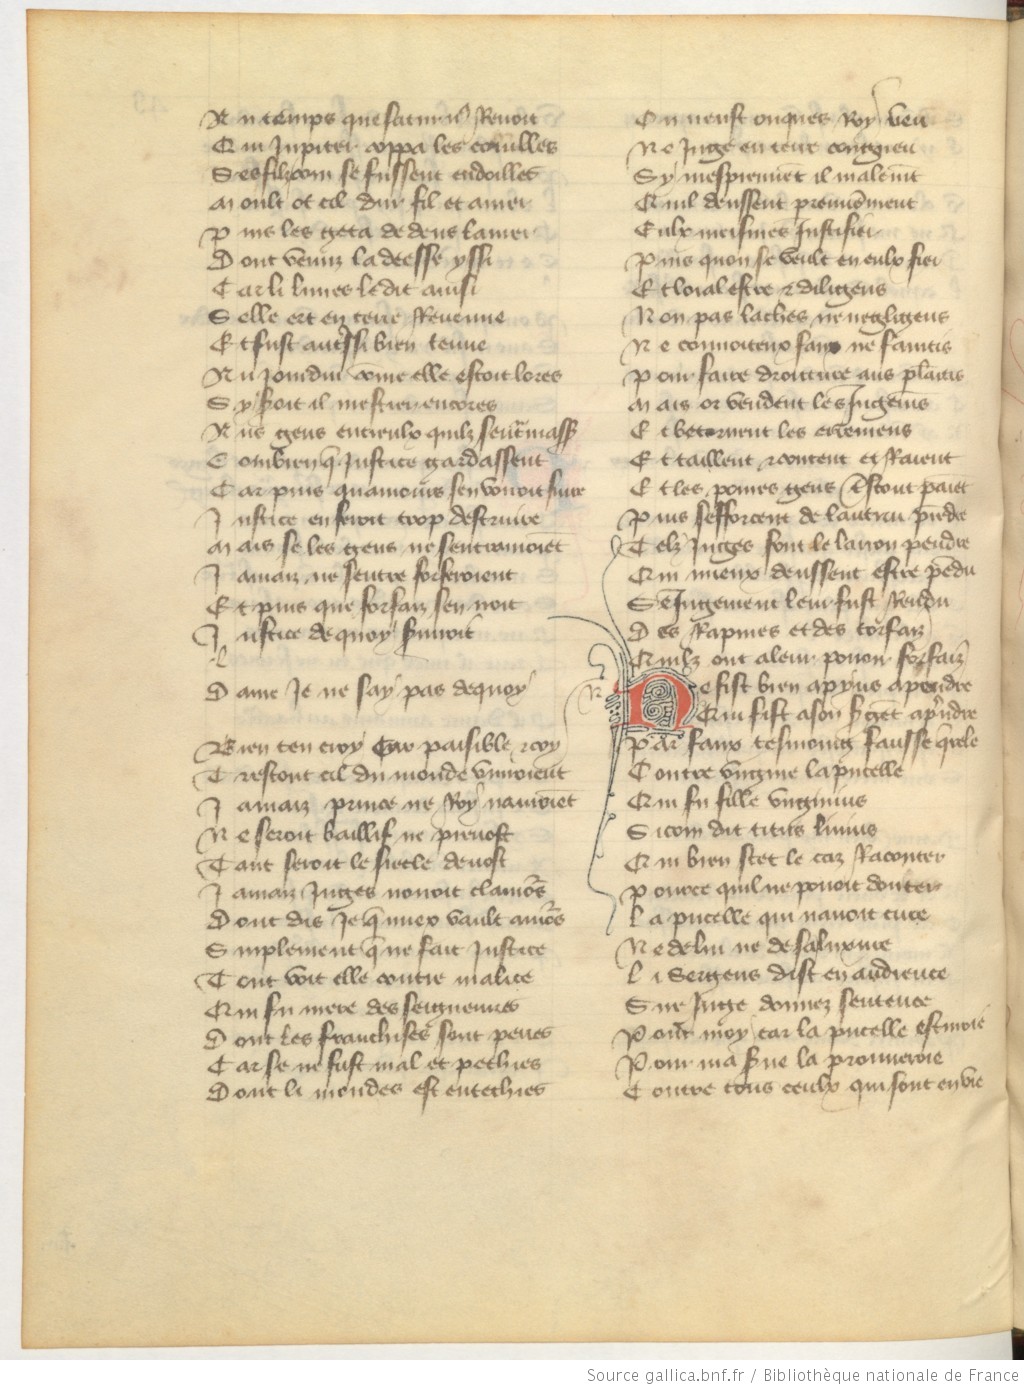 A u temps que saturnus Renoit
Q ui Jupiter coppa les couilles
S es filz com se fussent endoilles
M oult ot cil dur fil et amer
P uis les geta dedens la mer
D ont venuz la deesse yssi
C ar li liures le dit ainsi
S elle ert en terre Reuenue
E t fust autressi bien tenue
A u jourdui come elle estoit lores
S y seroit il mestier encores
A us gens entreulx quilz sentramass
C ombien q̃ Justice gardassent
C ar puis quamours sen vouroit fuire
J ustice en feroit trop destruire
M ais se les gens ne sentramoiẽt
J amaiz ne sentre forferoient
E t puis que forfaiz sen
J ustice de quoy seruiroit
D ame Je ne say pas dequoy
B ien ten croy Car paisible et coy
T restout cil du monde viuroient
J amaiz prince ne Roy nauroiẽt
N e seroit baillif ne preuost
T ant seroit le siecle deuost
J amaiz Juges norroit clamours
D ont dis Je q̃ miex vault amours
S implement q̃ ne fait Justice
T out voit elle contre malice
Q ui fu mere des seigneuries
D ont les franchises sont peries
C ar se ne fust mal et pechies
D ont li mondes est entechies
O n neust onques Roy veu
N e Juge en terre congneu
S y mesprennẽt il malemẽt
Q uil deussent premieremẽt
E ulx meismes Justifier
P uis quon se veult en eulx fier
E t loial estre et diligens
N on pas laches ne negligens
N e conuoiteux faux ne faintis
P our faire droiture aus plaintis
M ais or vendent les Jugemẽs
E t betornent les erremens
E t taillent et content et Raient
E t les poures gens trestout paiẽt
P uis sefforcent de lautrui prẽdre
T elz Juges font le larron pendre
Q ui mieux deussent estre pẽdu
S e Jugement leur fust Rendu
D es Rapines et des torfaiz
Q uilz ont a leur pouoir forfaiz
N e fist bien appius a pendre
Q ui fist a son sergẽt aprẽdre
P ar faux tesmoing fausse querele
C ontre virgine la pucelle
Q ui fu fille virginius
S icom dit titus liuius
Q ui bien scet le caz Raconter
P ource quil ne pouoit donter
L a pucelle qui nauoit cure
N e de lui ne de sa luxure
L i sergens dist en audience
S ire Juge donnez sentence
P our moy car la pucelle est moie
P our ma serue la prouueroie
C ontre tous ceulx qui sont en vie
Source gallica.bnf.fr / Bibliothèque nationale de France